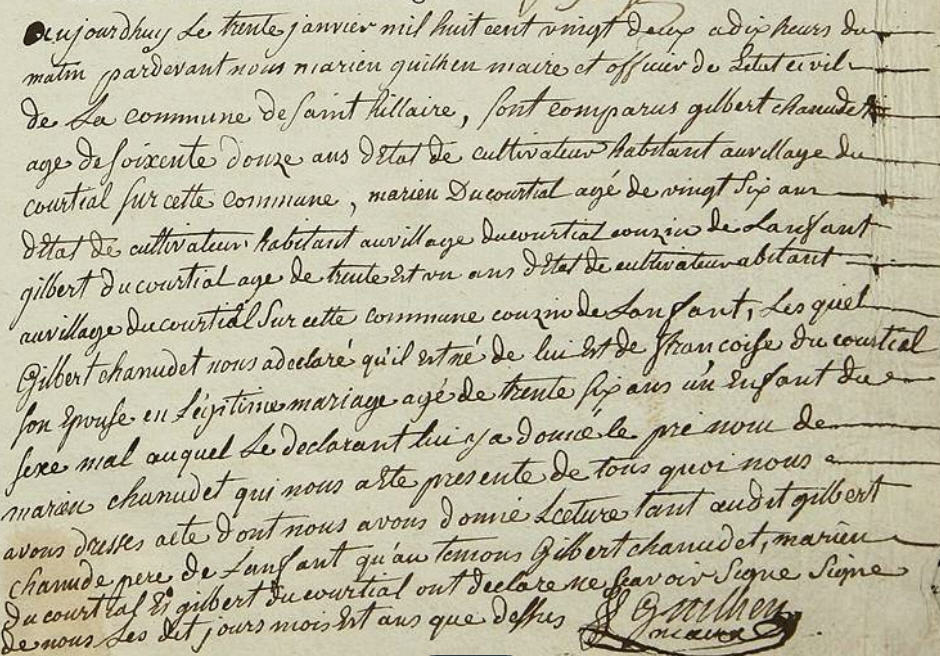 aujourdhuy Le trente janvier mil huit cent vingt deux a dix heurs du
matin pardevant nous marien quilhen maire et officier de Letat civil
de La commune de saint hillaire, sont comparus gilbert chanudet
age de soixente douze ans d'Etat de cultivateur habitant au village du
courtial sur cette commune, marien Ducourtial agé de vingt six ans
d'état de cultivateur habitant au village ducourtial couzin de Lanfant
gilbert ducourtial age de trente Est un ans d'Etat de cultivateur abitant
au village ducourtial sur cette commune couzin de Lanfant, Les quel
Gilbert chanudet nous a declaré qu'il est né de lui Est de francoise du courtial
son Epouse en Légitime mariage agé de trente six ans un Enfant du
sexe mal auquel Le declarant lui y a donné le pre nom de
marien chanudet qui nous a Ete presente de tous quoi nous
avons dresses acte dont nous avons donné Lecture tant audit gilbert
chanude pere de Lanfant qu'au temons Gilbert chanudet, marien
du courtial Et gilbert du courtial ont declare ne scavoir Signe Signe
de nous Les dit jours mois Est ans que dessus Guilhen
maire